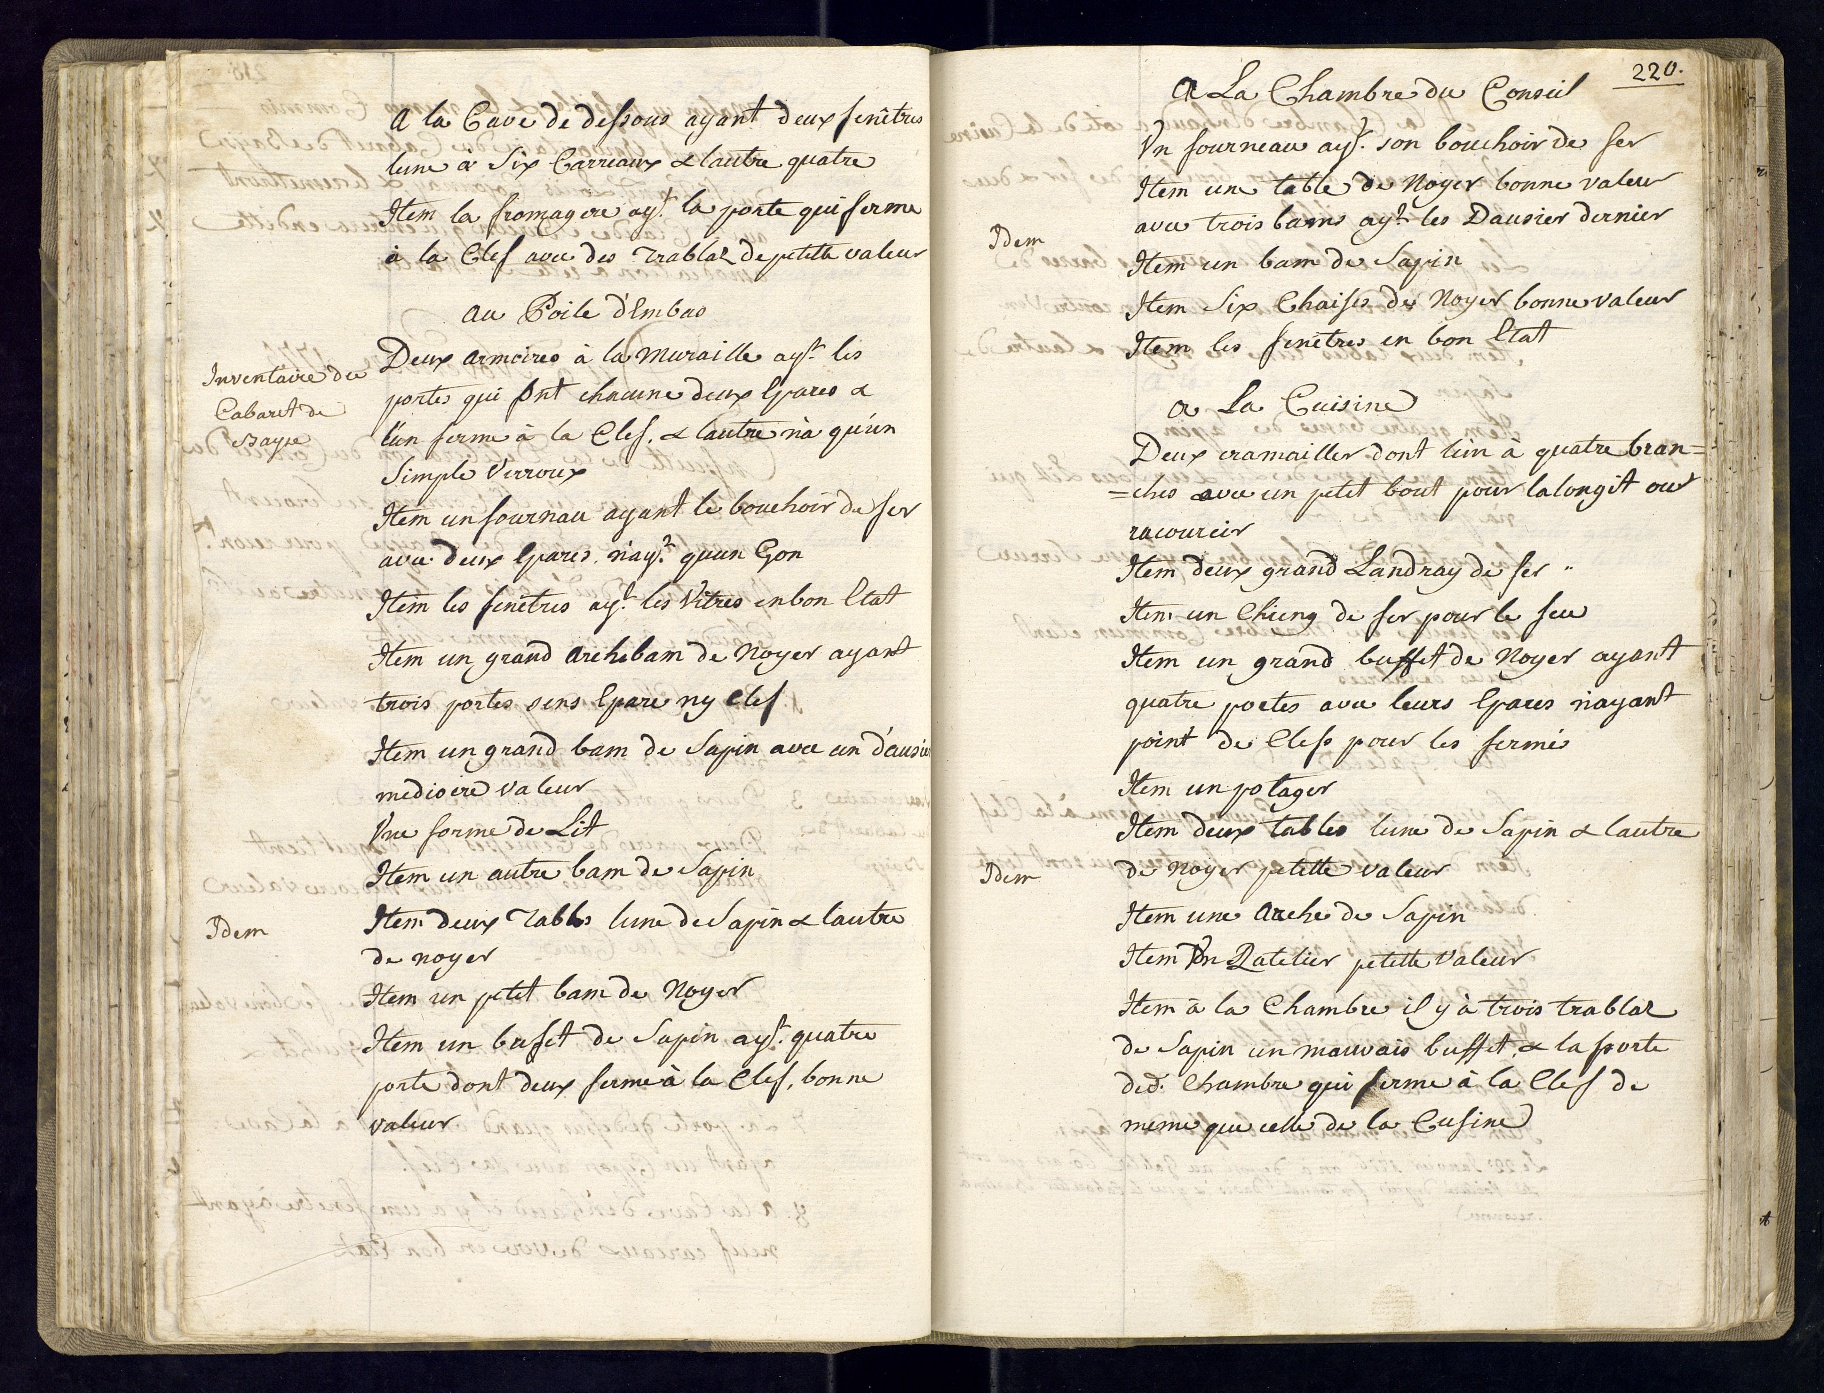 A la Cave de dessous ayant deux fenêtres
lune à Six Carreaux & lautre quatre
Item la fromagere ayt. la porte qui ferme
à la Clef avec des Trablat de petitte valeur
Au Poile d'Embas
Inventaire du
Cabaret de
Bayse
Deux armoires à la muraille ayt. les
portes qui ont chacune deux Epares &
l'un ferme à la Clef, & lautre n'à qu'un
Simple Verroux
Item un fournau ayant le bouchoir de fer
avec deux Epares n'ayt. quun Gon
Item les fenêtres ayt. les Vitres en bon Etat
Item un grand Archebam de Noyer ayant
trois portes sens Epare ny Clef
Item un grand bam de Sapin avec un d'ausier
mediocre valeur
Une forme de Lit
Item un autre bam de Sapin
Idem
Item deux Tables lune de Sapin & lautre
de noyer
Item un petit bam de Noyer
Item un bufet de Sapin ayt. quatre
porte dont deux ferme à la Clef, bonne
valeur
220.
A La Chambre du Conseil
Un fourneau ayt. son bouchoir de fer
Item une table de Noyer bonne valeur
avec trois bams ayt. les Dausier dernier
Idem
Item un bam de Sapin
Item Six Chaises de Noyer bonne valeur
Item les fenêtres en bon Etat
A La Cuisine
Deux cramailler dont lun à quatre bran=
=ches avec un petit bout pour lalongit ou
racourcir
Item deux grand Landray de fer "
Item un Chieng de fer pour le feu
Item un grand buffet de Noyer ayant
quatre portes avec leurs Epares n'ayant
point de Clefs pour les fermé
Item un potager
Item deux tables lune de Sapin & lautre
Idem
de Noyer petitte valeur
Item une Arche de Sapin
Item Un Ratelier petitte Valeur
Item à la Chambre il y à trois trablat
de Sapin un mauvais buffet, & la porte
ded. Chambre qui ferme à la Clef de
meme que celle de la Cusine